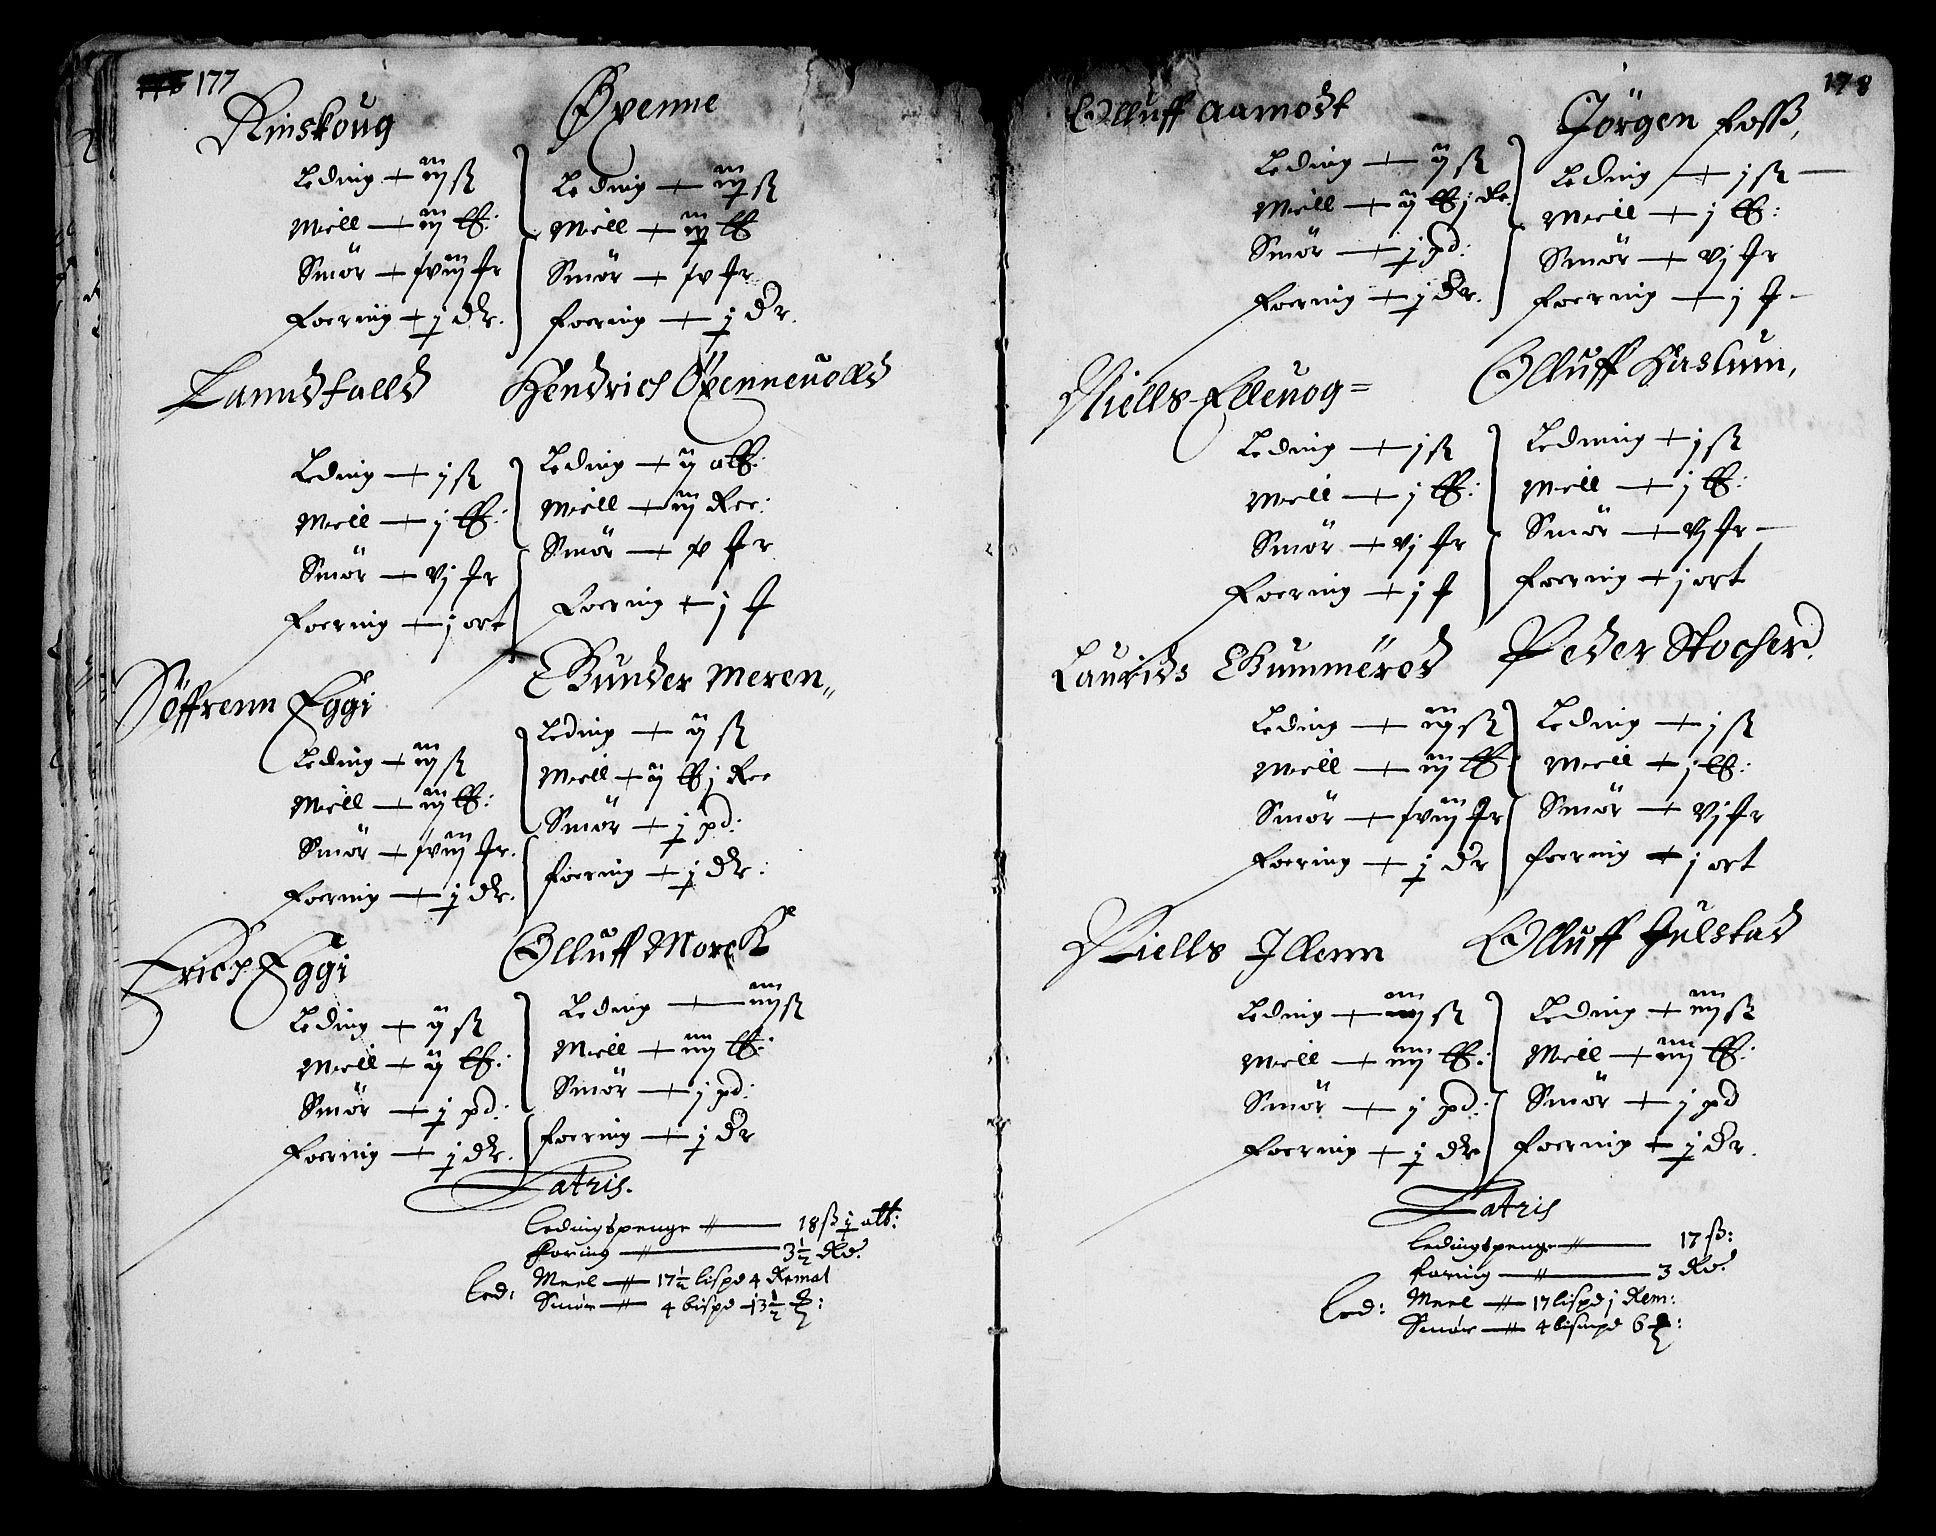 177
Rinskoug
Leding + iij ß
Meell + iij
Smör + xviij
Foering + j dr.
Øxenne
Leding + iij ß
Meell + iij
Smör + xv
foering + j dr.
Lanndfalld
Leding + j ß
Meell + j
Smör + vj
Foering + j ort
Hendrich Öxenneuolld
Leding + ij alb:
Meell + iij Ree:
Smör + x
Foering + j
Söffrenn Eggi
Leding + iij ß
Meell + iij
Smör + xviij
Foering + j dr.
Gunder Meren
Leding + ij ß
Meell + ij j Ree
Smör + j pd:
foering + j dr:
Erich Eggi
Leding + ij ß
Meell + ij
Smör + j pd:
Foering + j dr.
Olluff Morck
Leding + iiij ß
Meell + iiij
Smör + j pd:
foering + j dr
Latris.
Ledingspenge 18 ß j alb:
Foring 3½ Rd.
Meel 17½ lispd 4 Remal
Led:
Smör 4 bispd 13½
178
Olluff Aamodt
Leding + ij ß
Meell + ij j Re.
Smör + j pd:
Foering + j dr.
Jörgen Foss,
Leding + j ß
Meell + j
Smör + vj
foering + j
Niells Elleuog=
Leding + j ß
Meell + j
Smör + vj
Foering + j
Olluff Haslum,
Leding + j ß
Meell + j
Smör + vj
foering + j ort
Laurids Gummeröd
Leding + iij ß
Meell + iij
Smör + xviij
Foering + j dr
Peder Stocherd
Leding + j ß
Meell + j
Smör + vj
foering + j ort
Niells Illenn
Leding + iiij ß
Meell + iiij
Smör + j pd:
Foering + j dr
Olluff Julstad
Leding + iiij ß
Meell + iiij
Smör + j pd
foering + j dr.
Latris
Ledingspenge 17 ß:
foring 3 Rd.
Meel 17 lispd j Rem:
Led:
Smör 4 bismpd 6